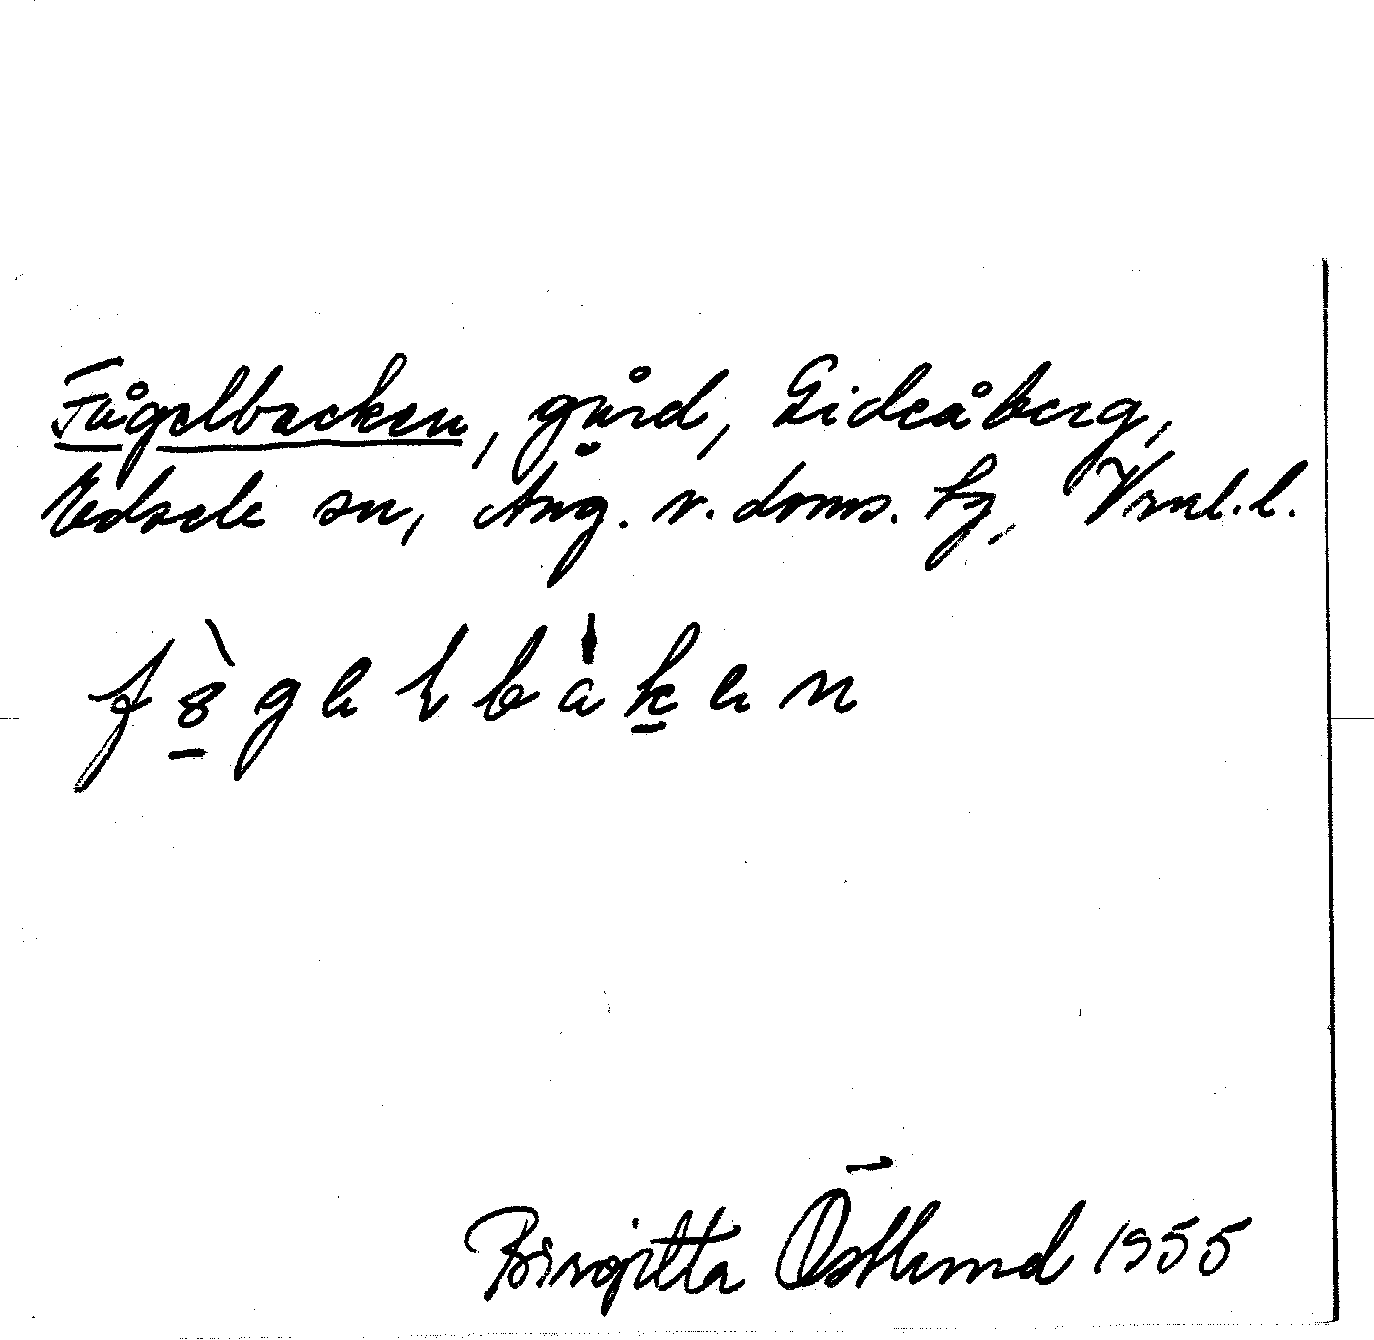 Fågelbacken, gård, Gideåberg,
Edsele sn, Ång. v. doms. tg, Vrnl. l.
Birgitta Östlund 1955